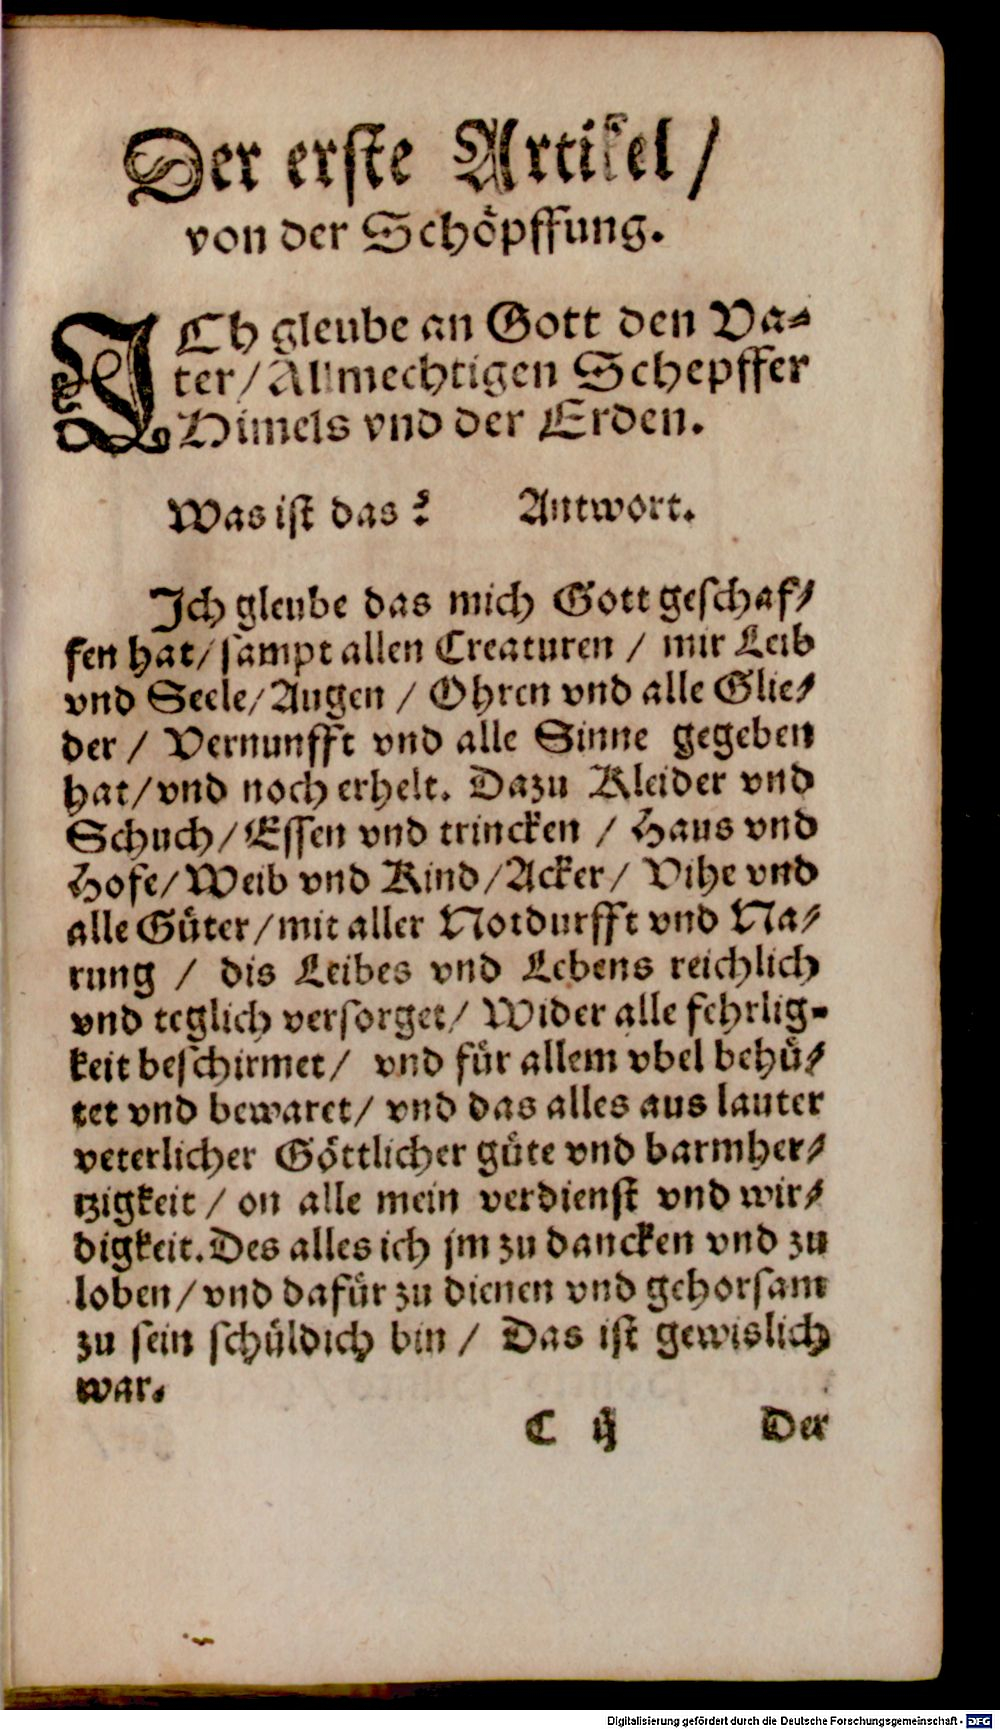 Der erste Artikel /
von der Schöpffung.
ICh gleube an Gott den Va⸗
ter / Allmechtigen Schepffer
Himels vnd der Erden.
Was ist das? Antwort.
Ich gleube das mich Gott geschaf⸗
fen hat / sampt allen Creaturen / mir Leib
vnd Seele / Augen / Ohren vnd alle Glie⸗
der / Vernunfft vnd alle Sinne gegeben
hat / vnd noch erhelt. Dazu Kleider vnd
Schuch / Essen vnd trincken / Haus vnd
Hofe / Weib vnd Kind / Acker / Vihe vnd
alle Güter / mit aller Notdurfft vnd Na⸗
rung / dis Leibes vnd Lebens reichlich
vnd teglich versorget / Wider alle fehrlig⸗
keit beschirmet / vnd für allem vbel behü⸗
tet vnd bewaret / vnd das alles aus lauter
veterlicher Göttlicher güte vnd barmher⸗
tzigkeit / on alle mein verdienst vnd wir⸗
digkeit. Des alles ich jm zu dancken vnd zu
loben / vnd dafür zu dienen vnd gehorsam
zu sein schüldich bin / Das ist gewislich
war.
C ij Der
Digitalisierung gefördert durch die Deutsche Forschungsgemeinschaft - DFG